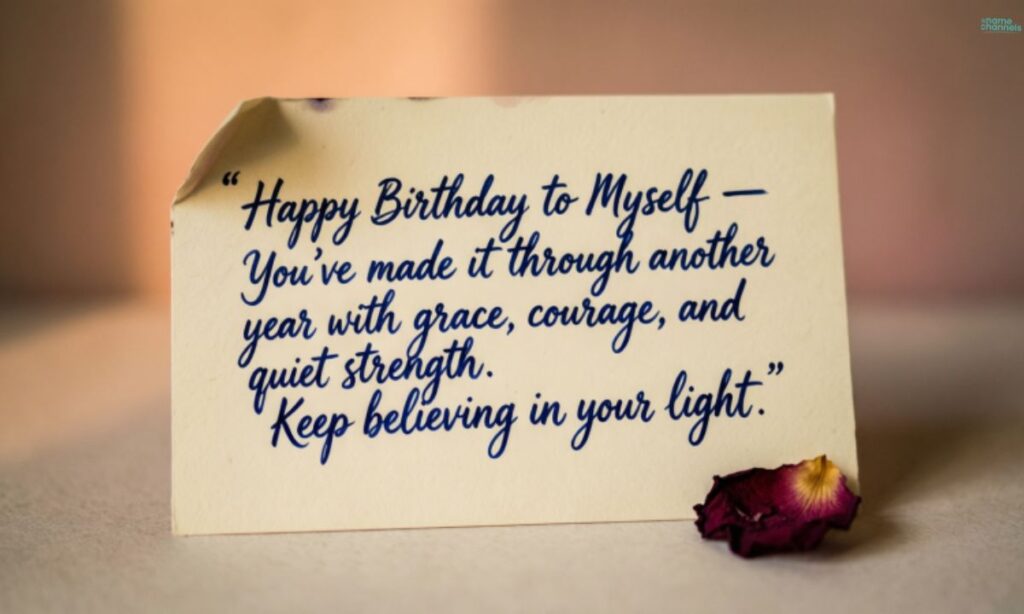 “Happy Birthday to Myself —
You’ve made it through another
year with grace, courage, and
quiet strength.
Keep believing in your light.”
name
channels